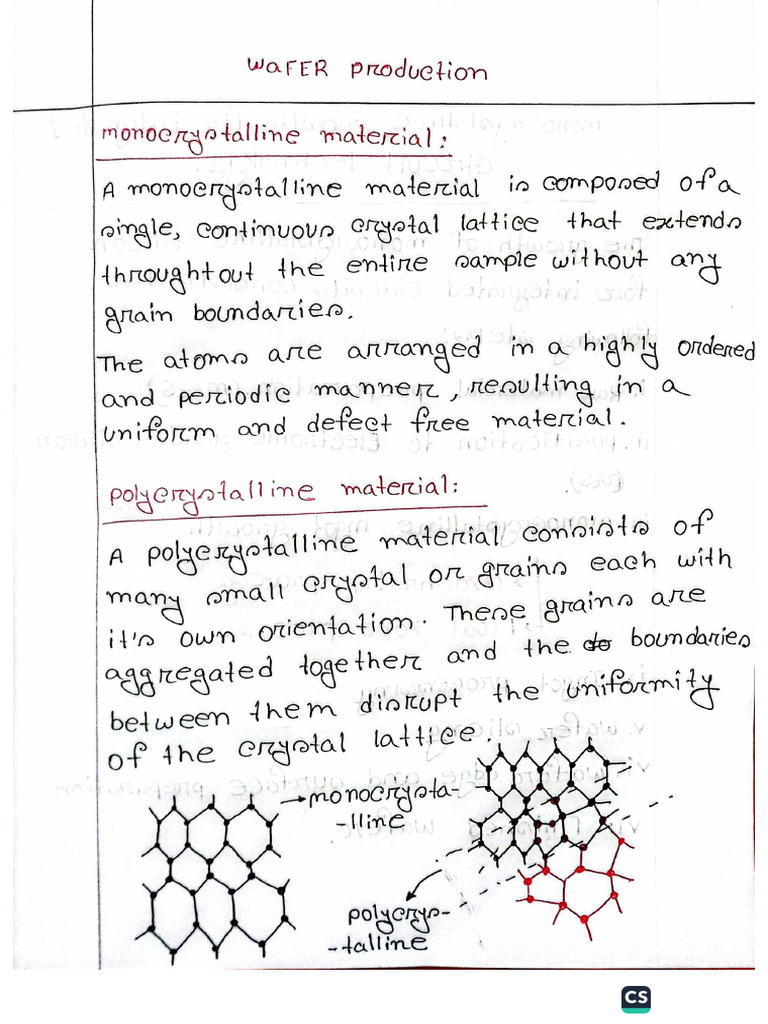 WaFER production
monocrystalline material:
A monocrystalline material is composed of a
single, continuous crystal lattice that extends
throughtout the entire sample without any
grain boundaries.
The atoms are arranged in a highly ordered
and periodic manner, resulting in a
uniform and defect free material.
polycrystalline material:
A polycrystalline material consists of
many small crystal or grains each with
it's own orientation. These grains are
aggregated together and the boundaries
between them disrupt the uniformity
of the crystal lattice.
monocrysta-
-lline
polycrys-
-talline
CS